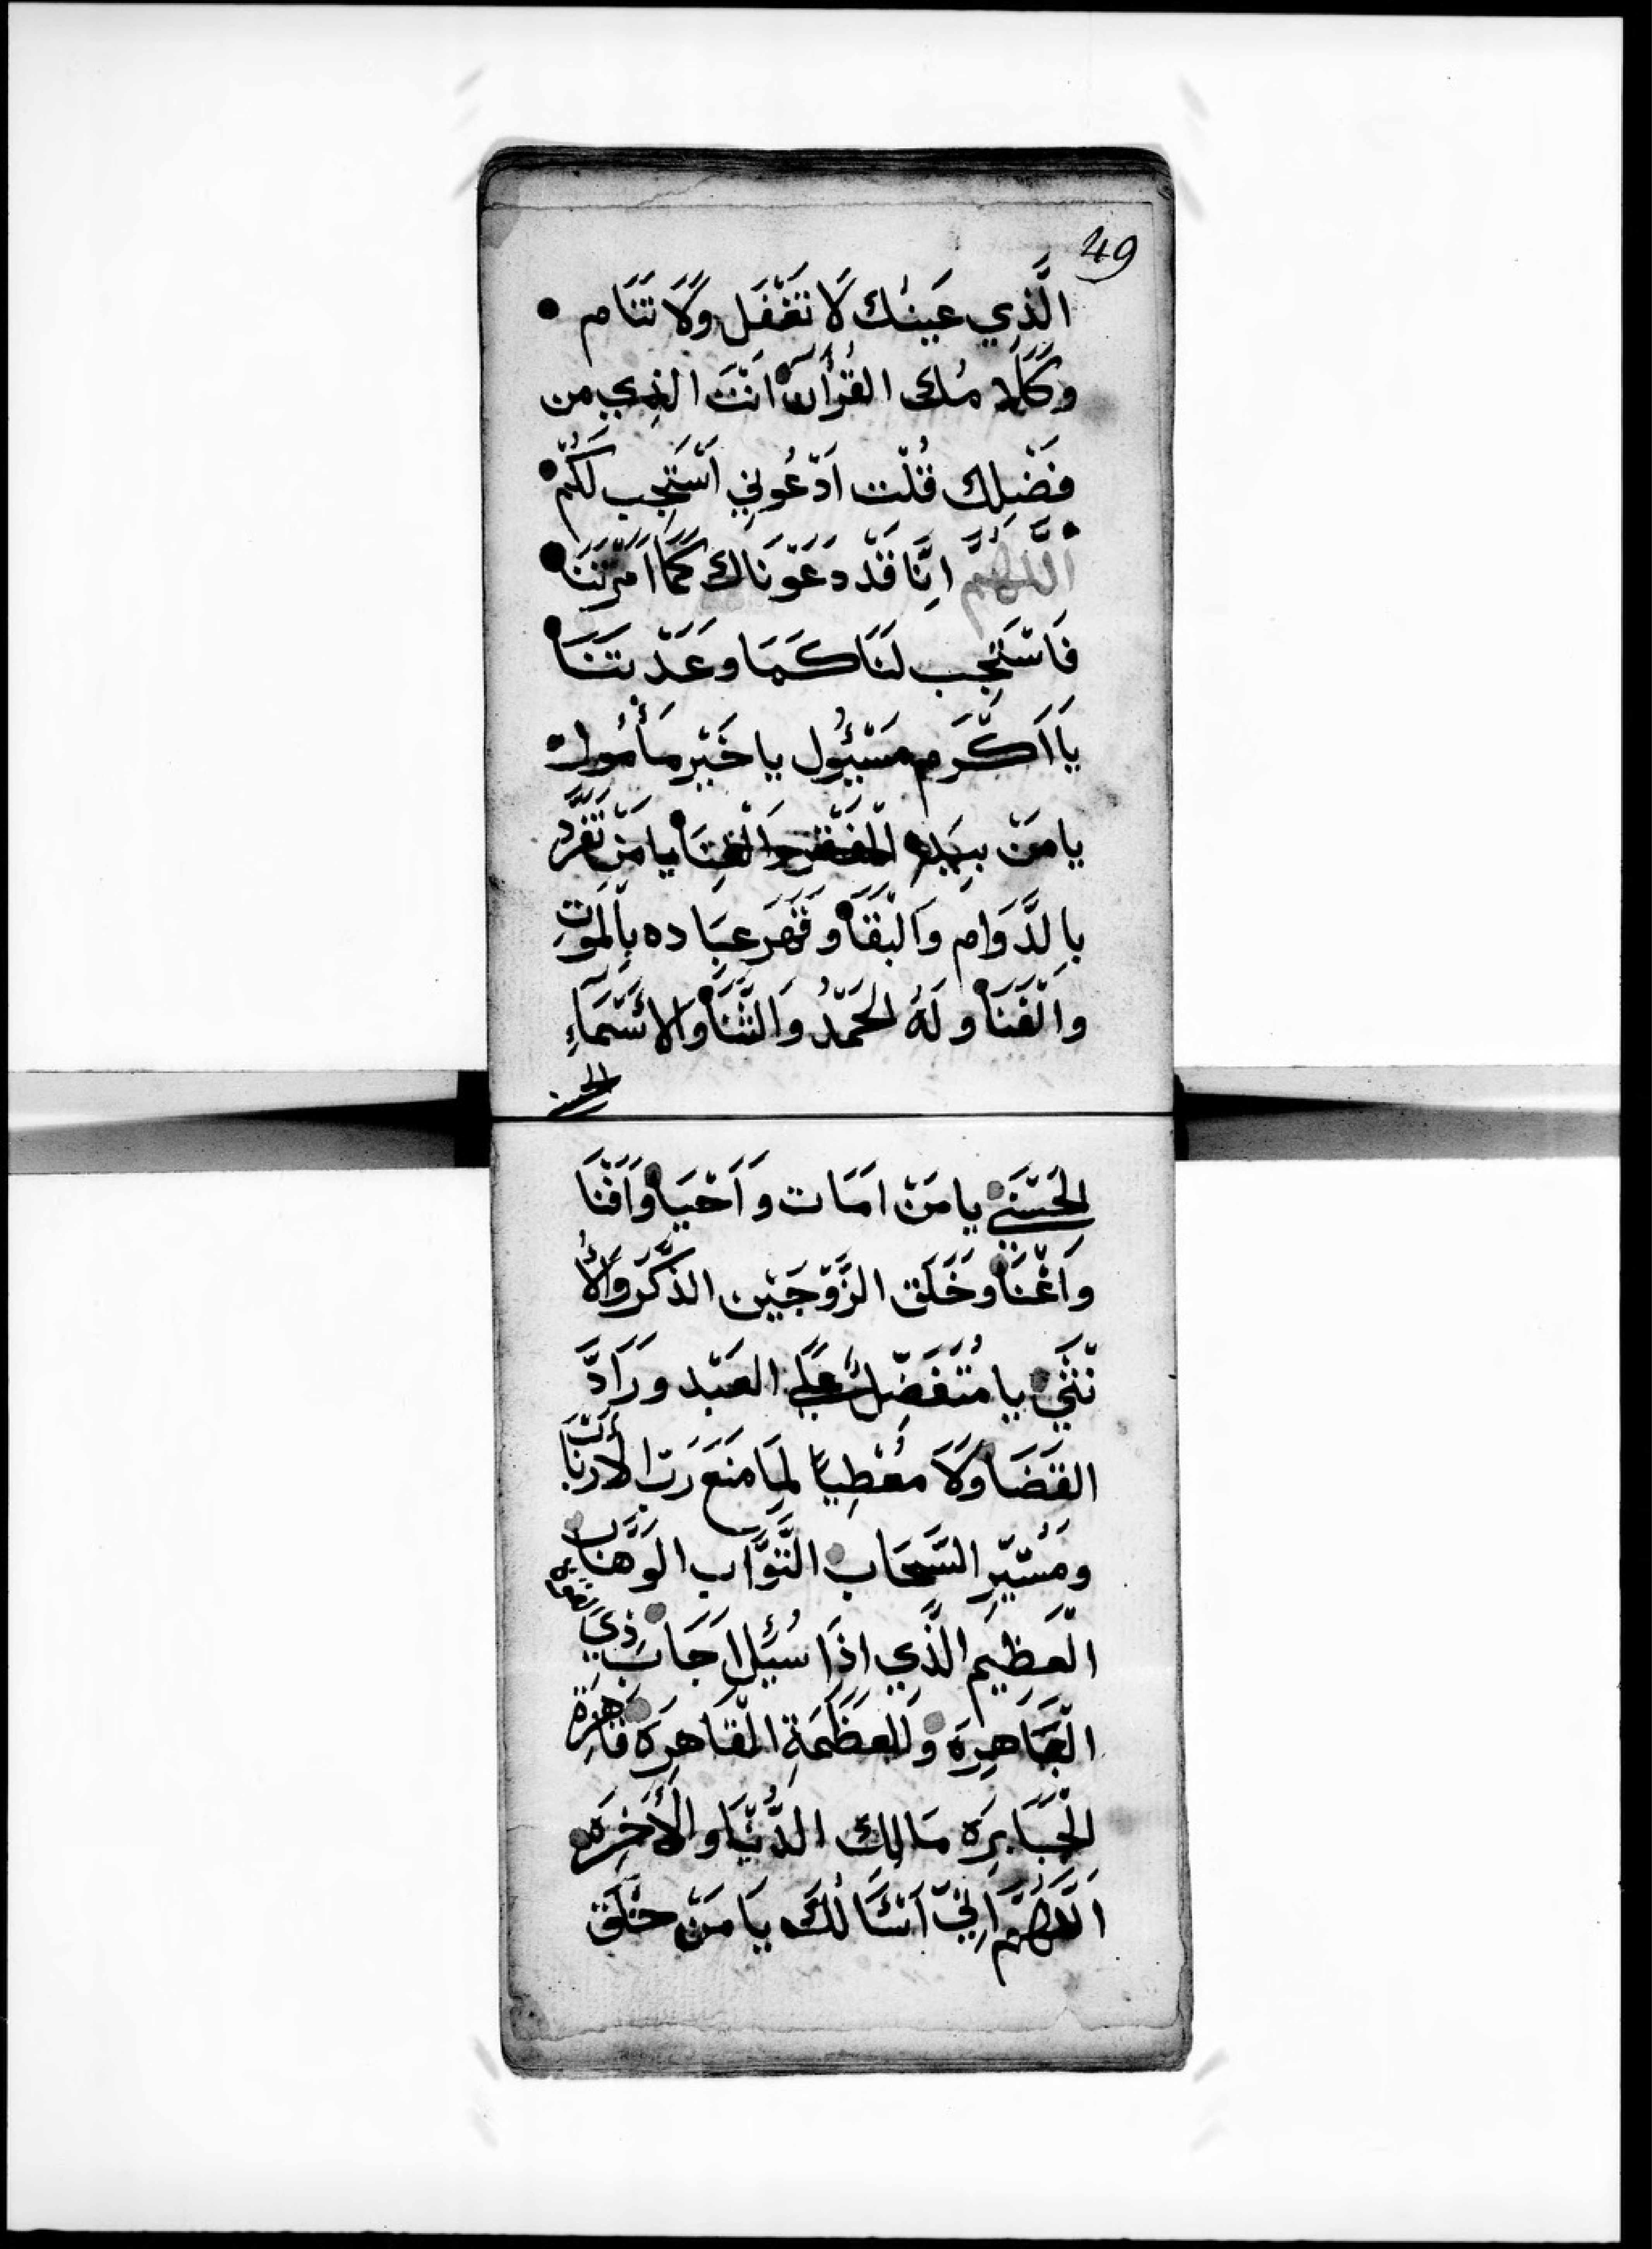 49
الَّذِي عَينُك لَا تَغْفَل وَلَا تَنَام
وكَلَامُك القُرْأن اَنْتَ الذِي من
فَضْلِك قُلْت اَدْعُونِي اَسْتَجِب لَكُمْ
اَللَّهُمَّ اِنَّا قَدْ دَعَوْنَاك كَمَا اَمَرْتَنَا
فَاسْتَجِب لَنَا كَمَا وَعَدْتَنَا
يَا اَكْرَم مَسْئُول يا خَيْر مَأْمُول
يا مَنْ بِيَدِه الْفَقْر وَالْغِنَا يا مَنْ تَفَرَّد
بِالدَّوَام وَالْبَقَا وَقَهَر عِبَاده بِالْمَوْتِ
والْفَنَا ولَهُ الحَمْدُ وَالثَّنَا وَالاَسْمَاءِ
الحسنى
الحُسْنَى يا مَنْ اَمَات وَاَحْيَا وَاَفْنَا
وَاَغْنَا وخَلَق الزَّوْجَيْن الذَّكَر وَالأُ
نْثَى يا مُتَفَضِّل عَلَى العَبْد ورَادَّ
القَضَا وَلَا مُعْطِياً لِمَا مَنَع رَبّ الاَرْبَاب
ومُسَيِّر السَّحَاب التَّوَّاب الوَهَّاب
الْعَظِيم الَّذِي اِذَا سُئِل اَجَاب ذِي
الْبَاهِرَة وَالعَظَمَةِ الْقَاهِرَة قَاهِرَة
الْجَبَابِرَة مَالِك الدُّنْيَا وَالْأَخِرَه
اَللَّهُمَّ اِنِّي اَسْئَالُكَ يَا مَنْ خَلَق